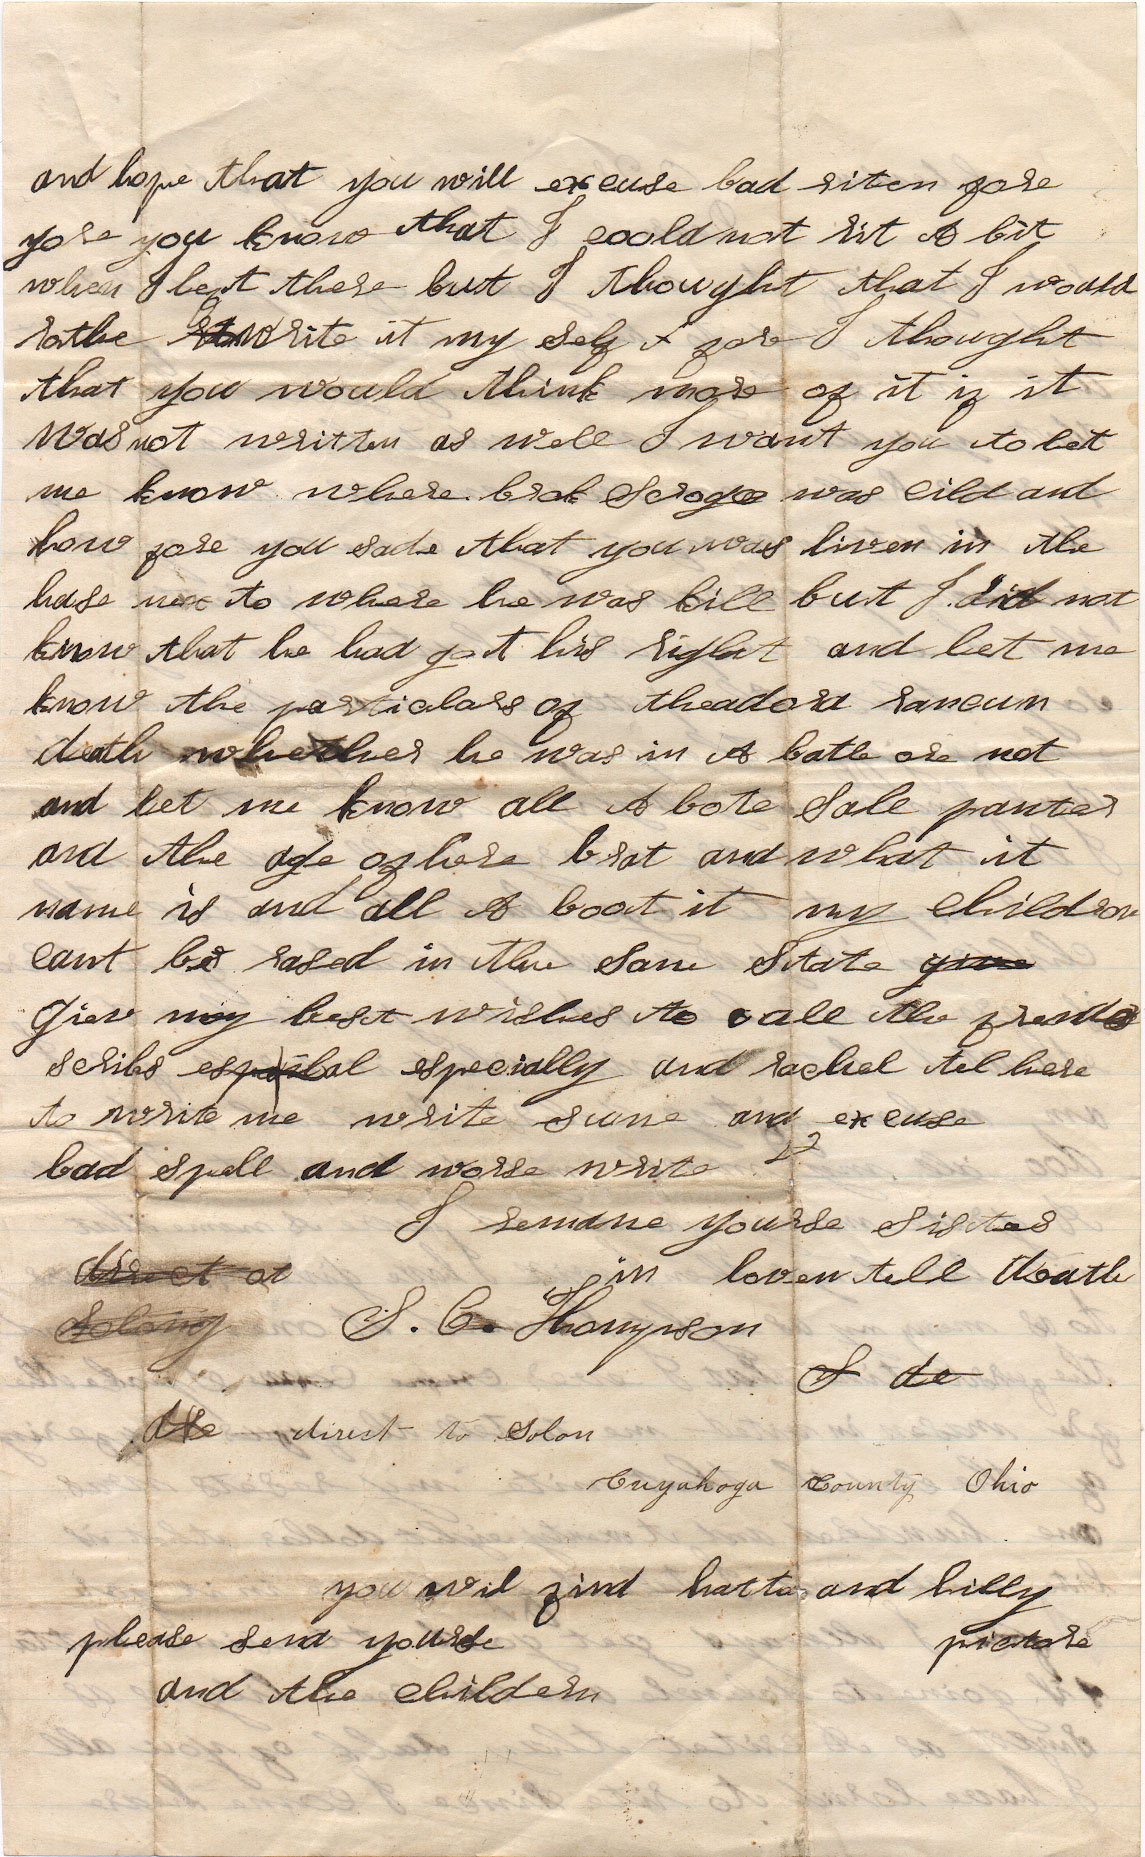 and hope that you will excuse bad riten fore
yore you know that I coold not rit A bit
when I left there but I thought that I would
rathe write it my self & fore I thought
that you would think more of it if it
was not written as well I want you to let
me know where brok was cild and
how fore you sade that you was liven in the
hase nex to where he was kill but I did not
know that he had got his right and let me
know the particlars of theadora rancun
death whether he was in A batle ore not
and let me know all A bote Sale panter
and the age of here brat and what it
name is and all A boat it my children
cant be rased in the sane state
giev my best wishes to all the frends
scribs especially and rachel tel here
to write me write sune and excuse
bad spell and worse write
I remane yourse sister
direct at in loven tell death
Solong S. C. Thompson
S de
dre direct to Solon
Cuyahoga County Ohio
you wil find hatta and billy
please send yourse picture
and the childern